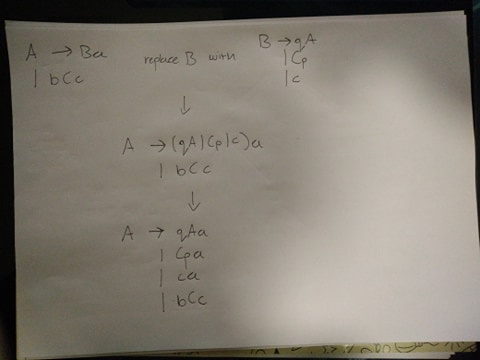 A → Ba
| bCc
replace B with
B → qA
| Cp
| c
↓
A → (qA|Cp|c)a
| bCc
↓
A → qAa
| Cpa
| ca
| bCc